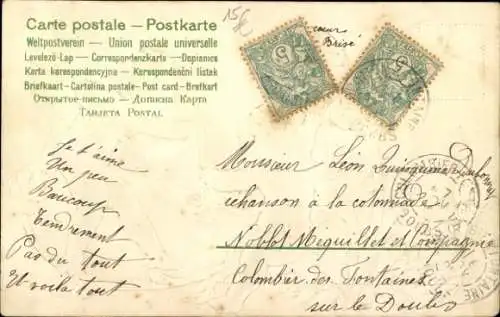 Carte postale — Postkarte
Weltpostverein — Union postale universelle
Levelező-Lap — Correspondenzkarte — Dopisnice
Karta korespondencyjna — Korespondenční listek
Briefkaart — Cartolina postale — Post card — Brefkort
Открытое письмо — Дописна Карта
Tarjeta Postal
15
cœur
Brisé
5
5
Je t'aime
Un peu
Baucoup
Tendrement
Pas du tout
Et voila tout
Monsieur Léon
échanson à la colonnade
Nobbot Méquillet et Compagnie
Colombier des Fontaines
sur le Doubs